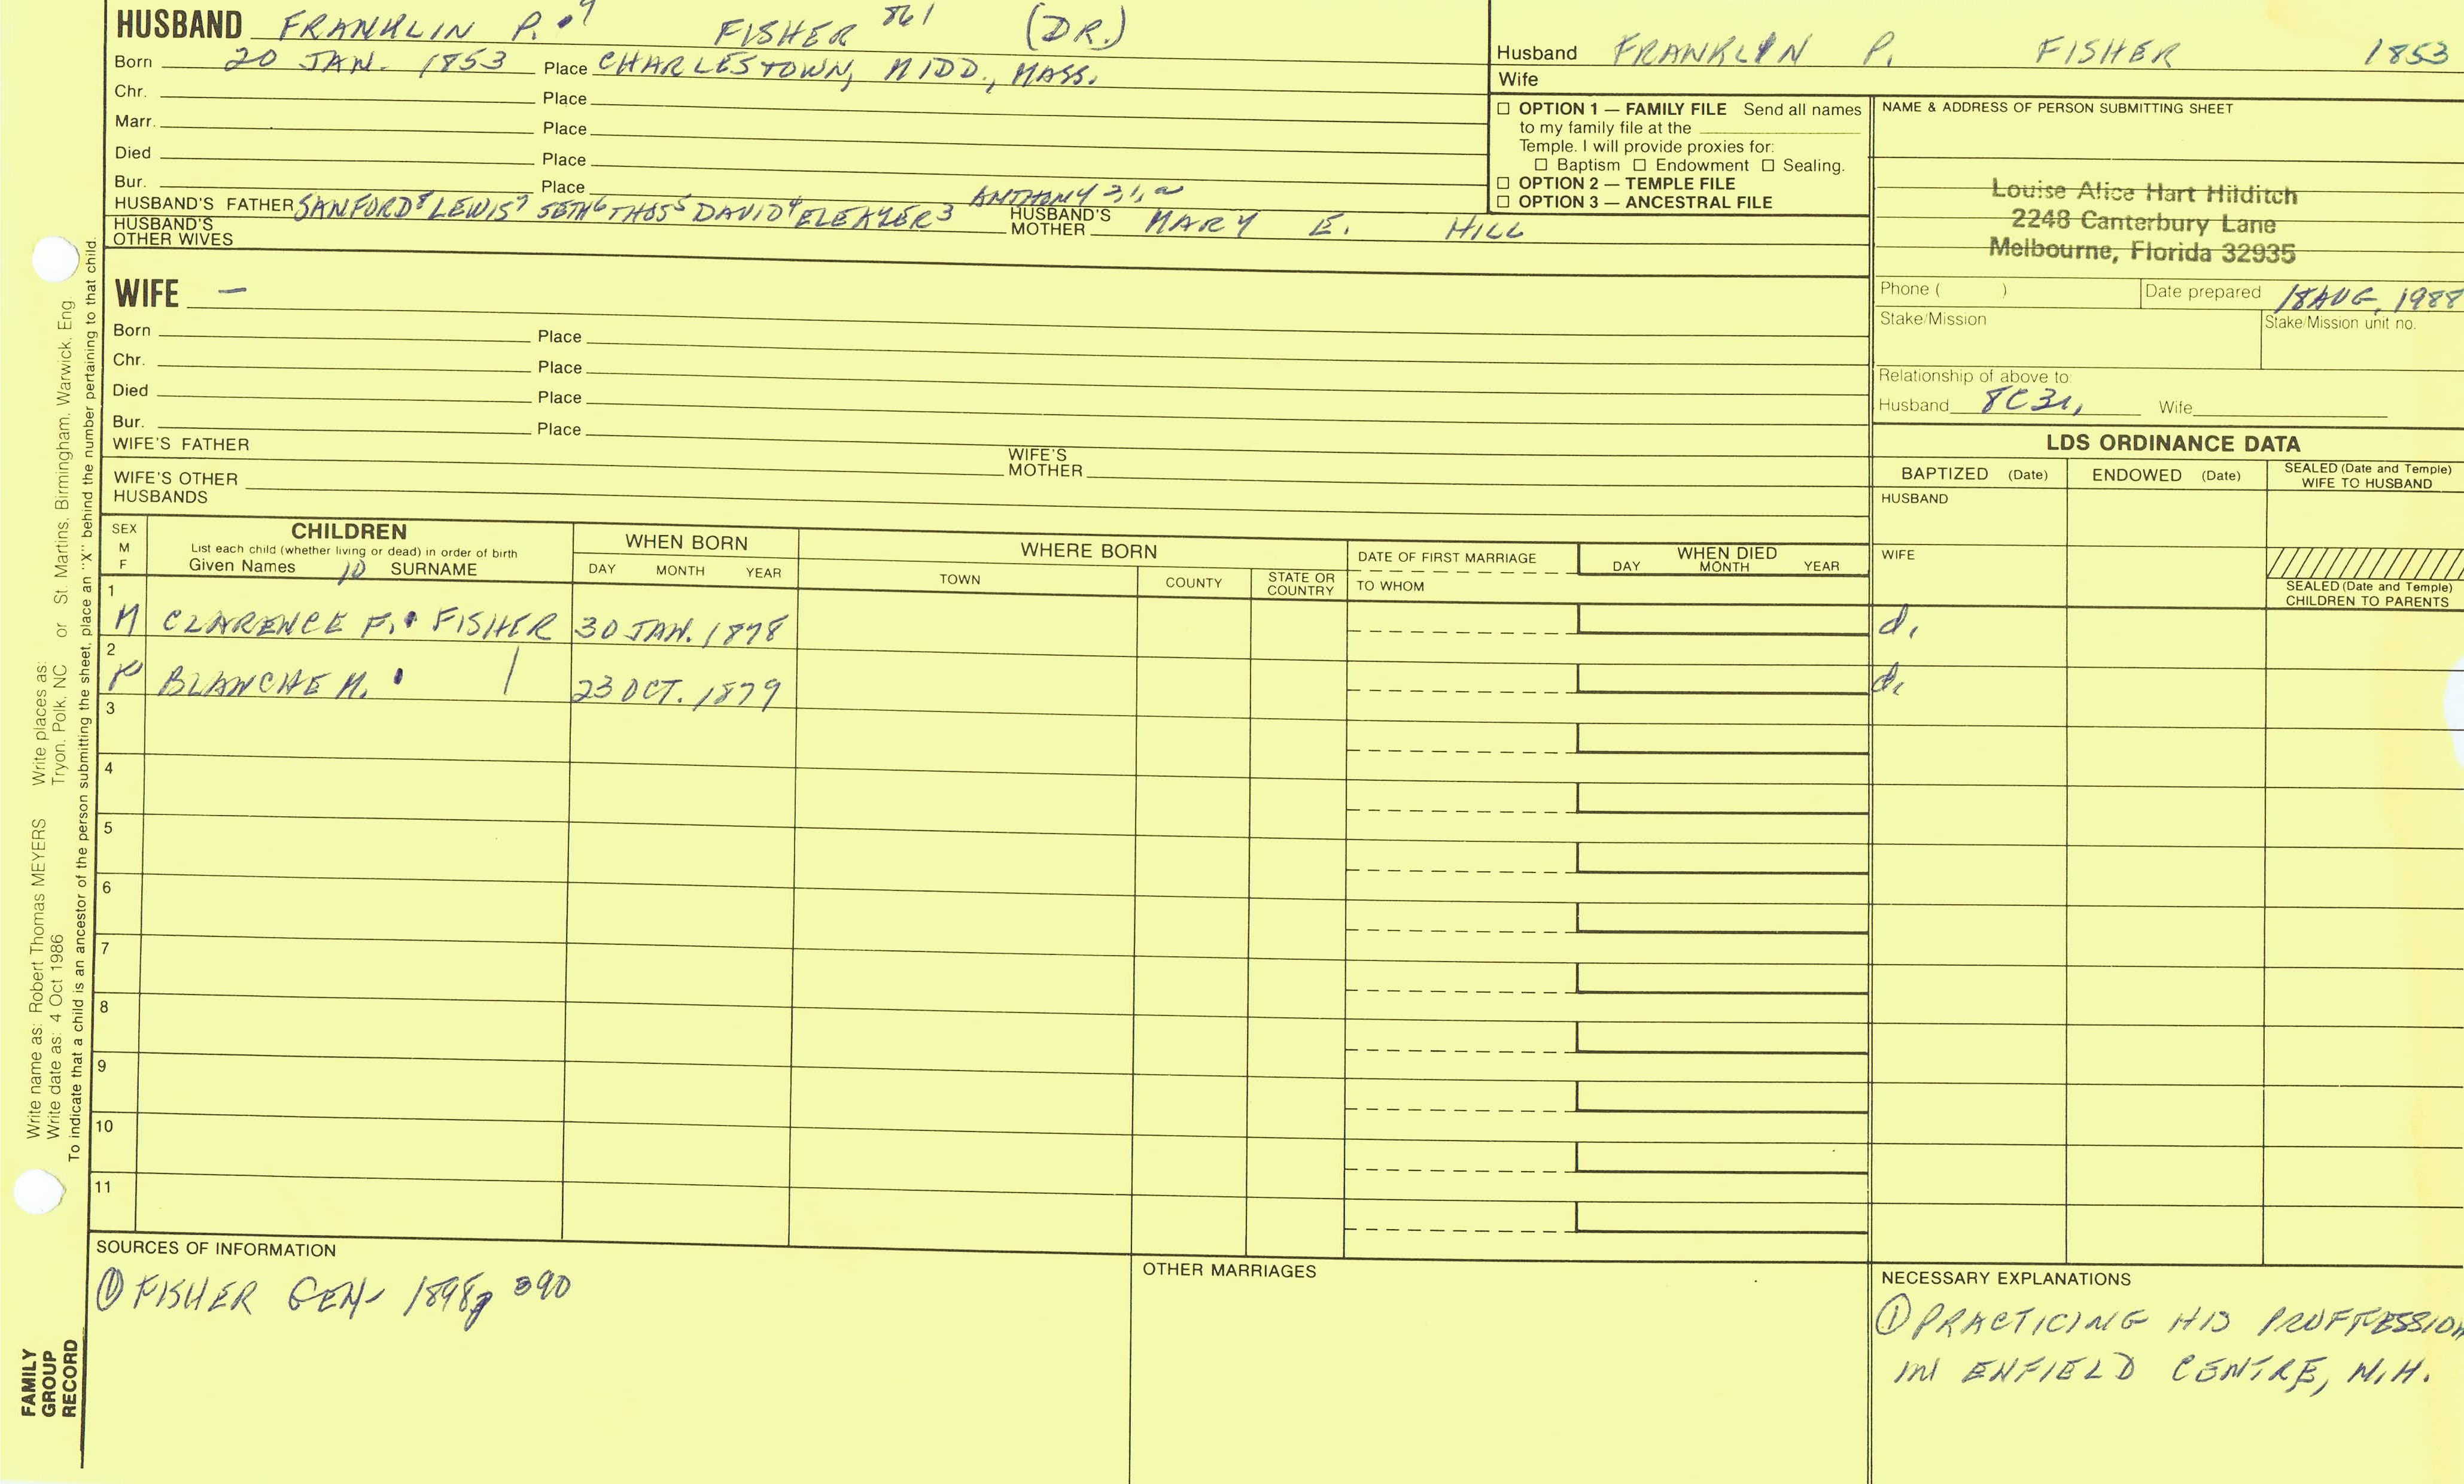 HUSBAND FRANKLIN P. 9 FISHER 861 (DR.)
Born 20 JAN. 1853 Place CHARLESTOWN, MIDD., MASS.
Chr. Place
Marr. Place
Died Place
Bur. Place
HUSBAND'S FATHER SANFORD8 LEWIS7 SETH6 THOS5 DAVID4 ELEAZER3 ANTHONY 2,1,a HUSBAND'S MOTHER MARY E. HILL
HUSBAND'S OTHER WIVES
Husband FRANKLIN P. FISHER 1853
Wife
☐ OPTION 1 — FAMILY FILE Send all names
to my family file at the
Temple. I will provide proxies for:
☐ Baptism ☐ Endowment ☐ Sealing.
☐ OPTION 2 — TEMPLE FILE
☐ OPTION 3 — ANCESTRAL FILE
NAME & ADDRESS OF PERSON SUBMITTING SHEET
Louise Alice Hart Hilditch
2248 Canterbury Lane
Melbourne, Florida 32935
Phone ( ) Date prepared 18 AUG, 1988
Stake/Mission Stake/Mission unit no.
Relationship of above to:
Husband 8C3r, Wife
WIFE –
Born Place
Chr. Place
Died Place
Bur. Place
WIFE'S FATHER WIFE'S MOTHER
WIFE'S OTHER HUSBANDS
LDS ORDINANCE DATA
BAPTIZED (Date) ENDOWED (Date) SEALED (Date and Temple) WIFE TO HUSBAND
HUSBAND
WIFE
SEALED (Date and Temple) CHILDREN TO PARENTS
SEX M F
CHILDREN
List each child (whether living or dead) in order of birth
Given Names 10 SURNAME
WHEN BORN
DAY MONTH YEAR
WHERE BORN
TOWN COUNTY STATE OR COUNTRY
DATE OF FIRST MARRIAGE
TO WHOM
WHEN DIED
DAY MONTH YEAR
1 M CLARENCE F. FISHER 30 JAN. 1878 d.
2 F BLANCHE M. 23 OCT. 1879 d.
3
4
5
6
7
8
9
10
11
SOURCES OF INFORMATION
① FISHER GEN- 1898 390
OTHER MARRIAGES
NECESSARY EXPLANATIONS
① PRACTICING HIS PROFFESSION
IN ENFIELD CENTRE, N.H.
FAMILY
GROUP
RECORD
Write name as: Robert Thomas MEYERS Write places as: or St. Martins, Birmingham, Warwick, Eng
Write date as: 4 Oct 1986 Tryon, Polk, NC
To indicate that a child is an ancestor of the person submitting the sheet, place an "X" behind the number pertaining to that child.